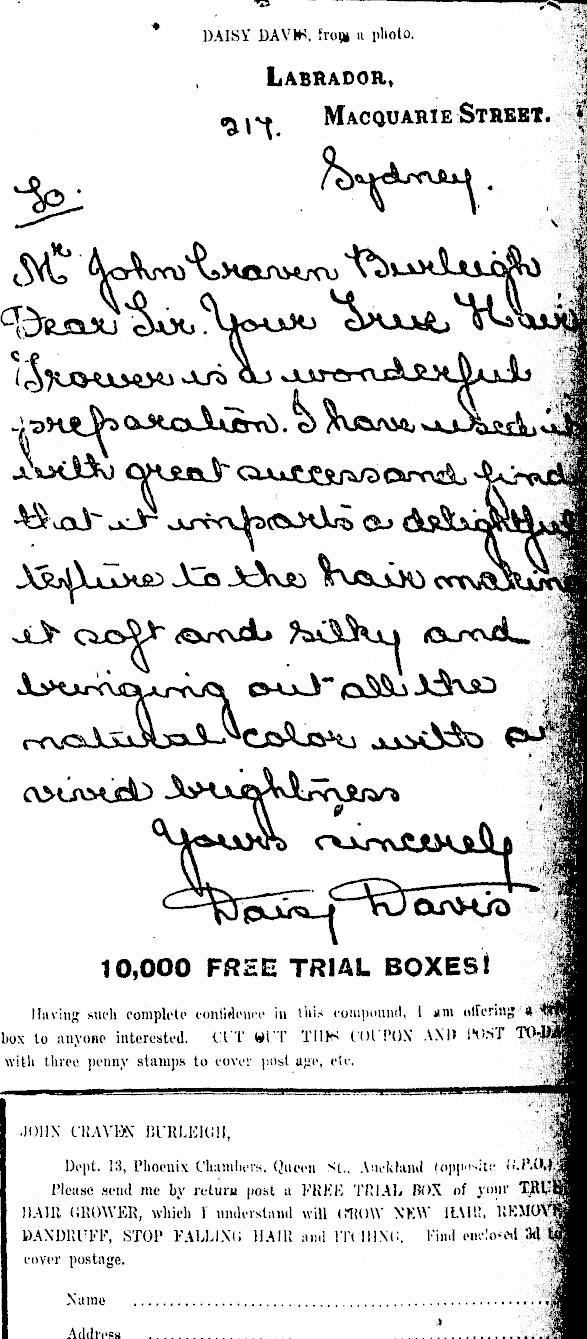 DAISY DAVIS, from a photo.
LABRADOR,
217. MACQUARIE STREET.
Sydney.
To.
Mr John Craven Burleigh
Dear Sir. Your True Hair
Grower is a wonderful
preparation. I have used it
with great success and find
that it imparts a delightful
texture to the hair making
it soft and silky and
bringing out all the
natural color with a
vivid brightness
Yours sincerely
Daisy Davis
10,000 FREE TRIAL BOXES!
Having such complete confidence in this compound, I am offering a
box to anyone interested. CUT OUT THIS COUPON AND POST TO-DA
with three penny stamps to cover post age, etc.
JOHN CRAVEN BURLEIGH,
Dept. 13, Phoenix Chambers, Queen St., Auckland (opposite G.P.O.)
Please send me by return post a FREE TRIAL BOX of your TRUE
HAIR GROWER, which I understand will GROW NEW HAIR, REMOVE
DANDRUFF, STOP FALLING HAIR and ITCHING. Find enclosed 3d to
cover postage.
Name
Address